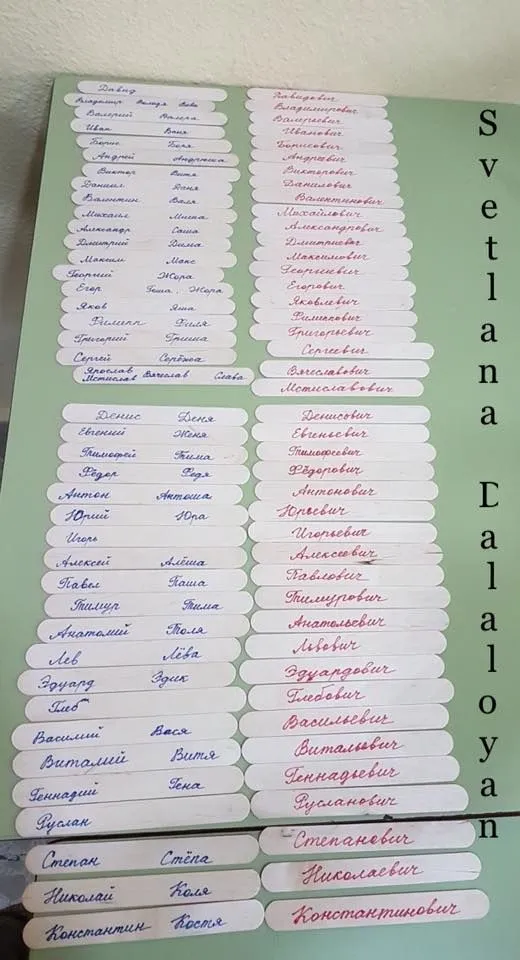 Давид Давидович
Владимир Володя Вова Владимирович
Валерий Валера Валерьевич
Иван Ваня Иванович
Борис Боря Борисович
Андрей Андрюша Андреевич
Виктор Витя Викторович
Даниил Даня Данилович
Валентин Валя Валентинович
Михаил Миша Михайлович
Александр Саша Александрович
Дмитрий Дима Дмитриевич
Максим Макс Максимович
Георгий Жора Георгиевич
Егор Гоша, Жора Егорович
Яков Яша Яковлевич
Филипп Филя Филиппович
Григорий Гриша Григорьевич
Сергей Серёжа Сергеевич
Ярослав Вячеслав Слава Вячеславович
Мстислав Мстиславович
Денис Деня Денисович
Евгений Женя Евгеньевич
Тимофей Тима Тимофеевич
Фёдор Федя Фёдорович
Антон Антоша Антонович
Юрий Юра Юрьевич
Игорь Игорьевич
Алексей Алёша Алексеевич
Павел Паша Павлович
Тимур Тима Тимурович
Анатолий Толя Анатольевич
Лев Лёва Львович
Эдуард Эдик Эдуардович
Глеб Глебович
Василий Вася Васильевич
Виталий Витя Витальевич
Геннадий Гена Геннадьевич
Руслан Русланович
Степан Стёпа Степанович
Николай Коля Николаевич
Константин Костя Константинович
Svetlana Dalaloyan